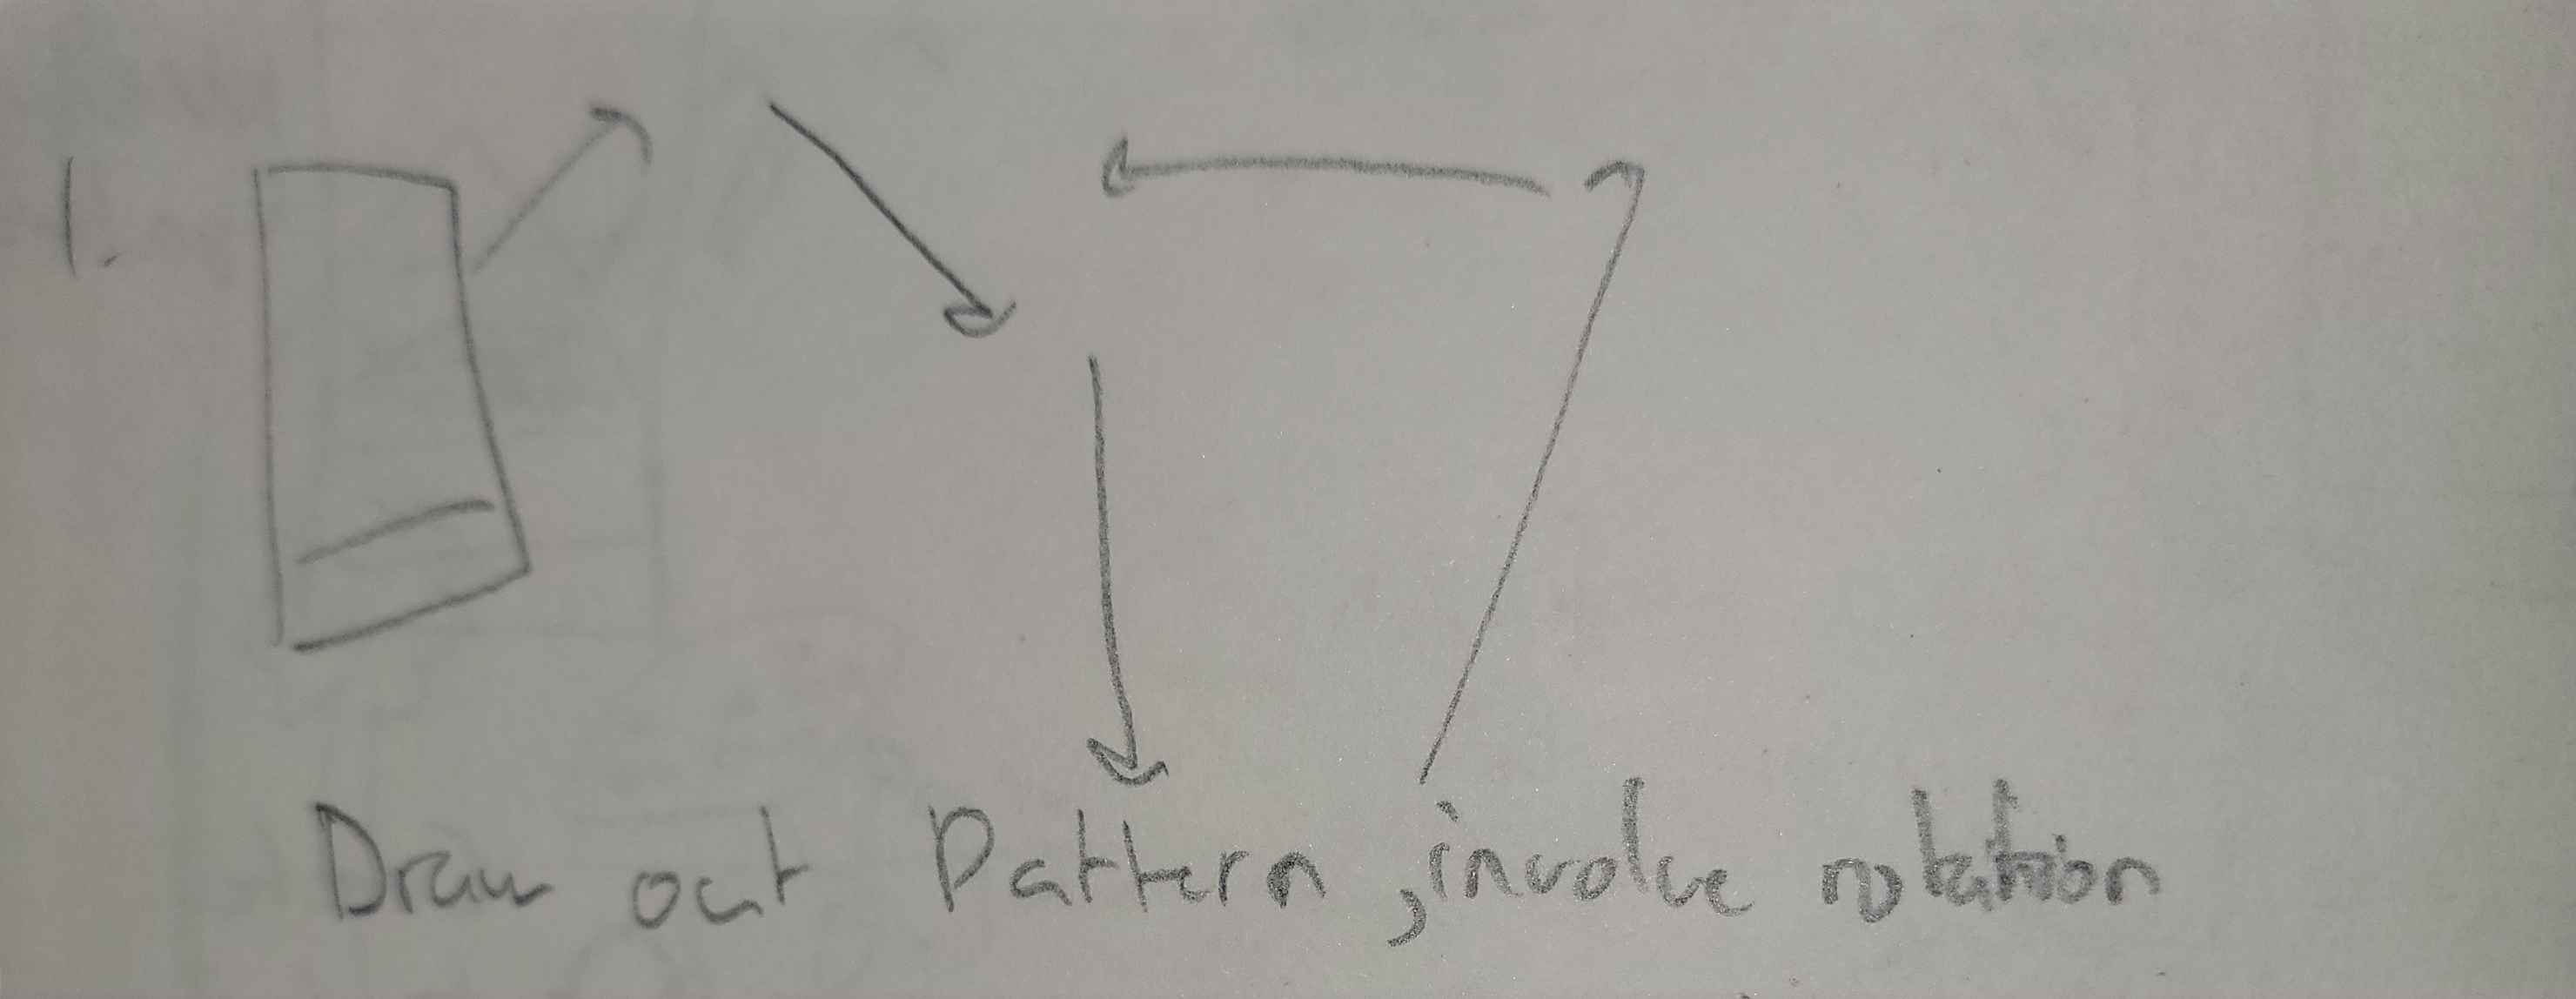 1.
Draw out Pattern, involve rotation